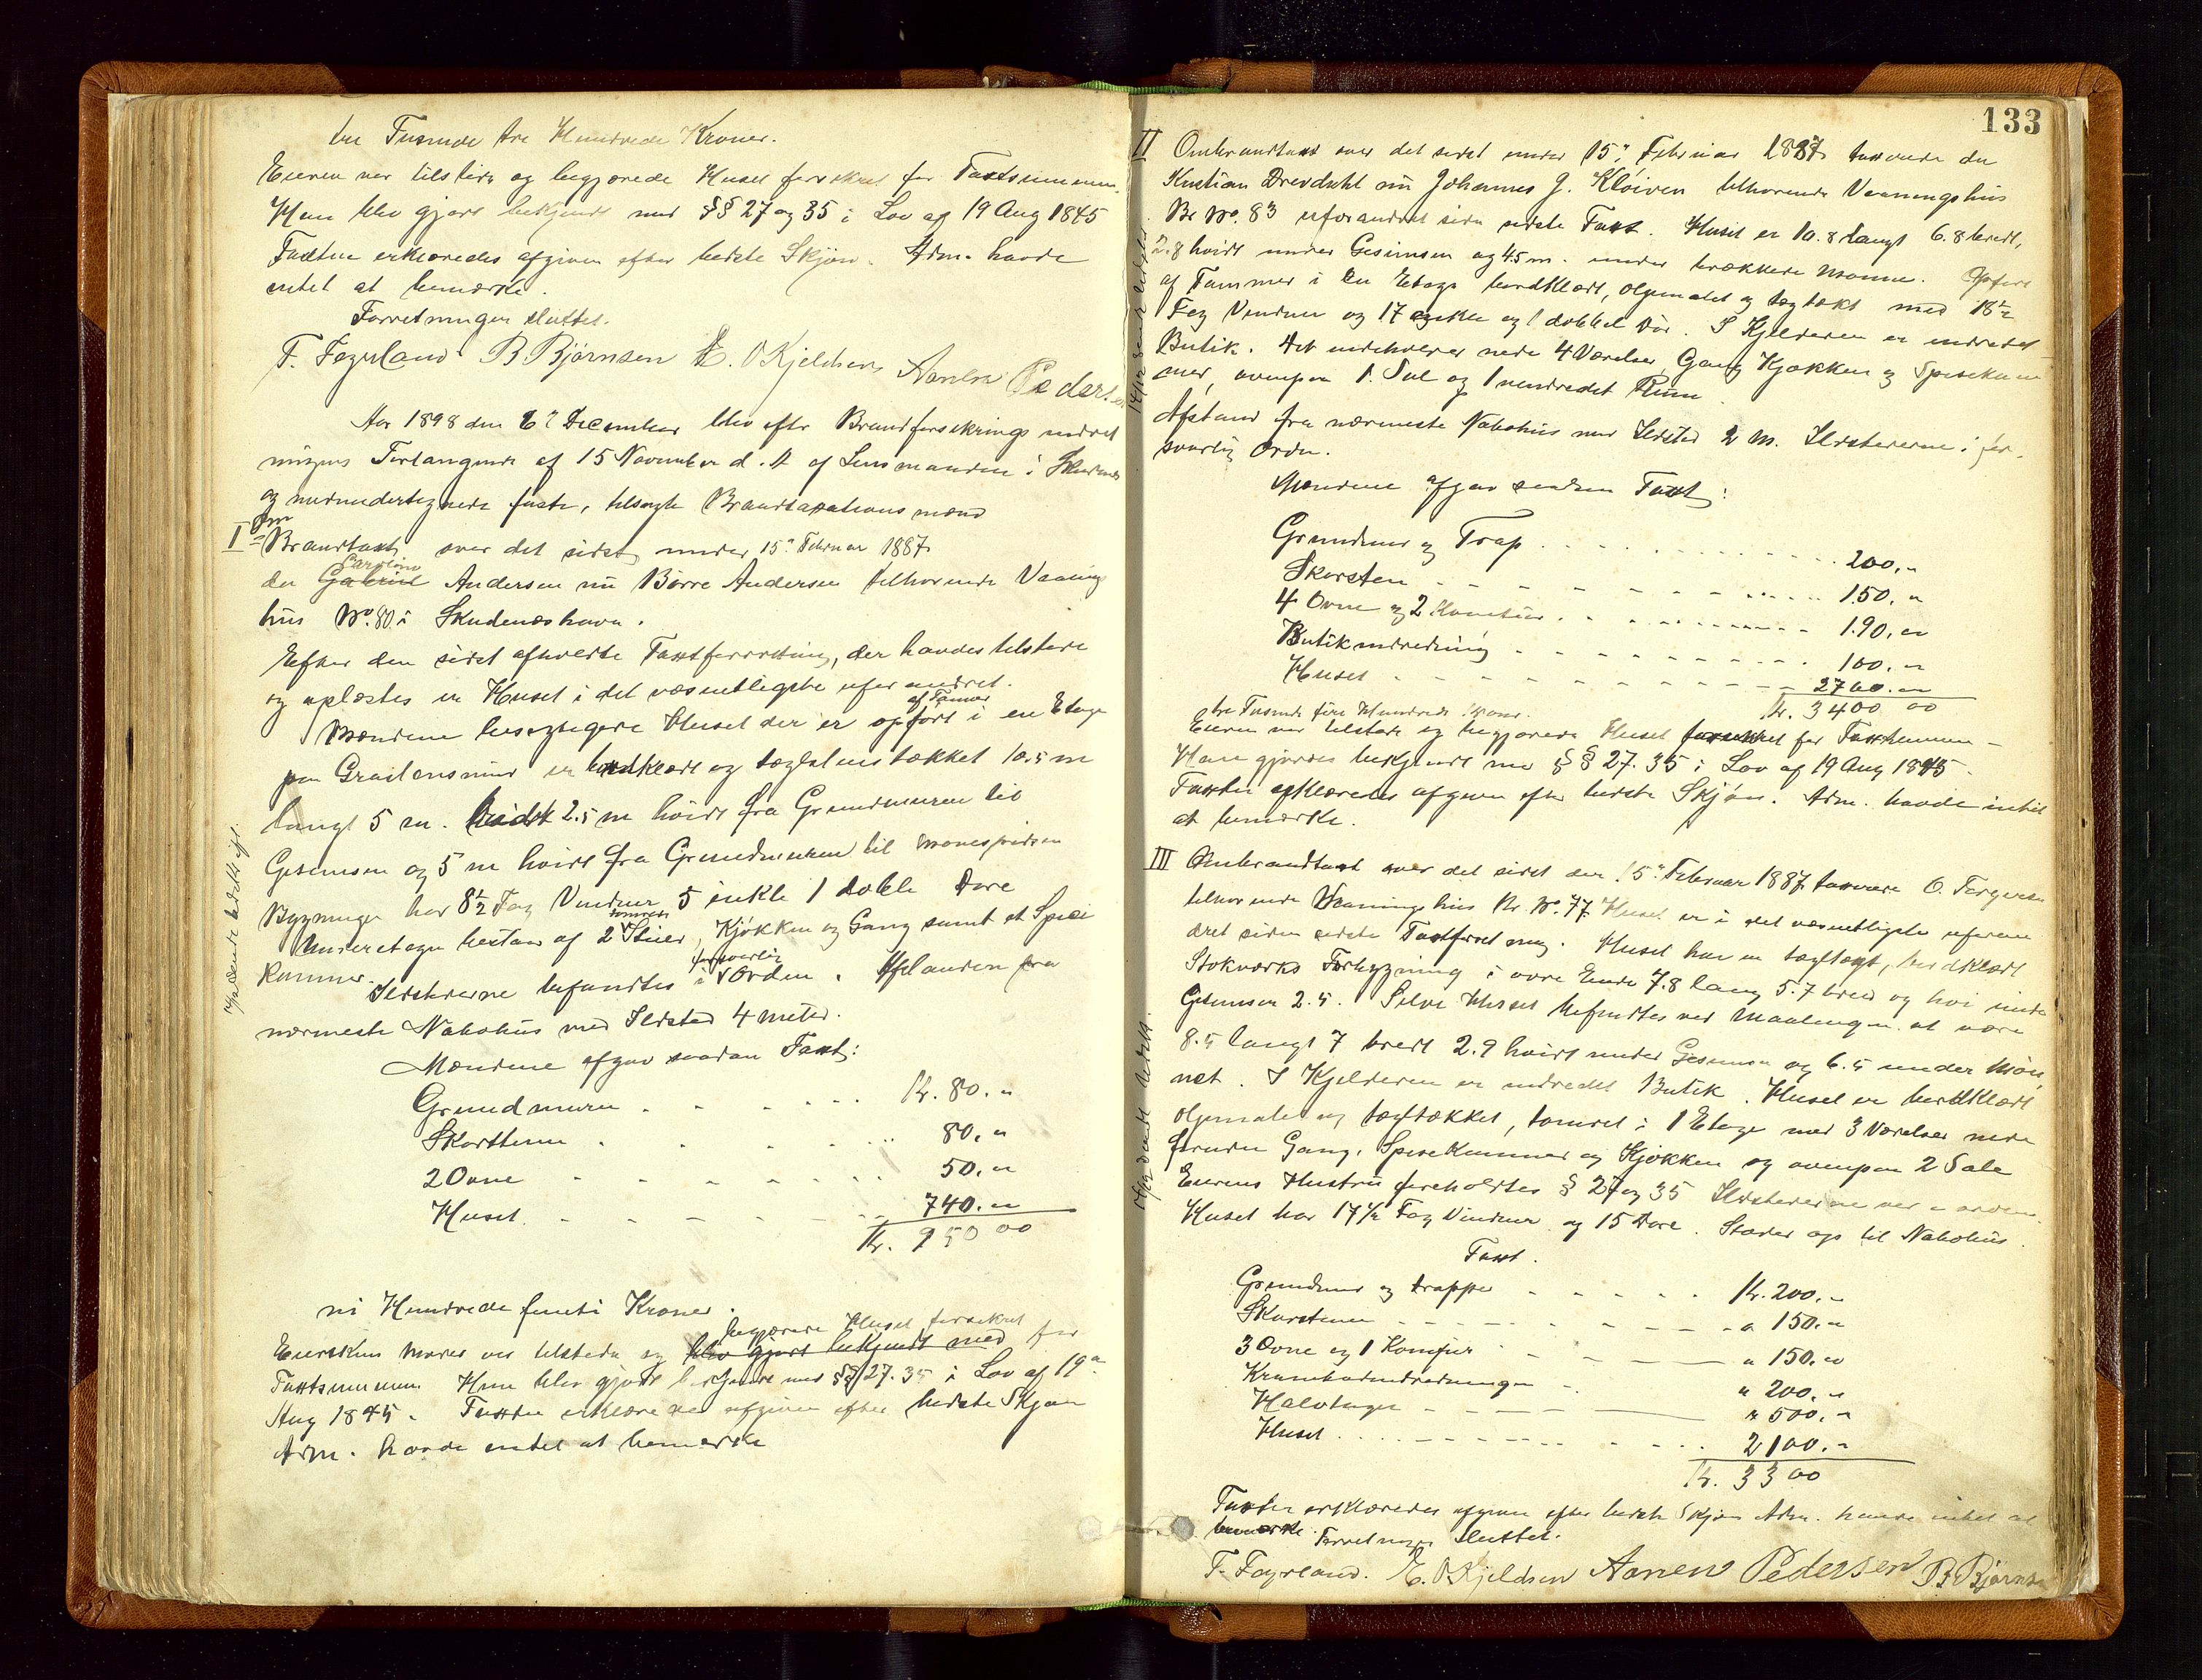 tre Tusinde tre Hundrede Kroner.
Eieren var tilstede og begjærede Huset forsikret for Taxtsummen.
Han blev gjort bekjendt med §§ 27 og 35 i Lov af 19 Aug 1845
Taxten erklæredes afgiven efter bedste Skjøn. Adm. havde
intet at bemærke.
Forretningen sluttet.
T. Fagerland B Bjørnsen E. O Kjeldsen Aanen Pedersen
Aar 1898 den 6te December blev efter Brandforsikringsindret
ningens Forlangende af 15 November d. A af Lensmanden i Skudenes
og medundertegnede faste, tilsagte Brandtaxations mænd
I Om
Brandtaxt over det sidst under 15de Februar 1887
Caroline
der Gabriel Andersen nu Børre Andersen tilhørende Vaanings
hus No. 80 i Skudeneshavn.
Efter den sidst afholdte Taxtforretning, der havdes tilstede
og oplæstes er Huset i det væsentligste uforandret.
af Tømmer
Mændene besigtigede Huset der er opført i en Etage
paa Graastensmur er bordklædt og taglstenstækket 10.5 m
langt 5 m. bredt 2.5 m høidt fra Grundmuren til
Gesimsen og 5 m høidt fra Grundmuren til Mønespidsen
Bygningen har 8½ Fag Vinduer 5 enkle 1 doble Døre
Underetagen bestaar af 2 Stuer, Kjøkken og Gang samt et Spise
kammer.
forsvarlig
Ildstederne befandtes i Orden. Afstanden fra
nærmeste Nabohus med Ildsted 4 meter.
Mændene afgav saadan Taxt:
Grundmuren Kr. 80. "
Skorstenen 80. "
2 Ovne 50. "
Huset 740. "
Kr. 950 00
ni Hundrede femti Kroner.
begjærede Huset forsikret
Eierskens Moder var tilstede og blev gjort bekjendt med for
Taxtsummen Hun blev gjort bekjendt med §§ 27. 35 i Lov af 19de
Aug 1845. Taxten erklæredes afgiven efter bedste Skjøn
Adm. havde intet at bemærke
133
II Ombrandtaxt over det sidst under 15de Februar 1887 taxerede der
Kristian Drevdahl nu Johannes J. Kløiven tilhørende Vaaningshus
Br No. 83 uforandret siden sidste Taxt. Huset er 10.8 langt 6.8 bredt,
2.8 høidt under Gesimsen og 4.5 m. under trækkede Mønne. Opført
af Tømmer i En Etage bordklædt, oljemalet og tagtækt med 18½
Fag Vinduer og 17 enkle og 1 dobbel Dør. I Kjelderen er indredet
Butik. Det indeholder nede 4 Værelser, Gang Kjøkken og Spisekam
mer, ovenpaa 1. Sal og 1 uindredet Rum
Afstand fra nærmeste Nabohus med Ildsted 2 M. Ildstederne i for-
svarlig Orden.
Mændene afgav saadan Taxt:
Grundmur og Trap 200. "
Skorsten 150. "
4 Ovne og 2 Komfurer 190. "
Butikindredning 100. "
Huset 2760. "
Kr. 3400 00
tre Tusinde fire Hundrede Kroner.
Eieren var tilstede og begjærede Huset forsikret for Taxtsummen
Han gjordes bekjendt med §§ 27. 35 i Lov af 19 Aug 1845.
Taxten erklæredes afgiven efter bedste Skjøn. Adm. havde intet
at bemærke.
III Ombrandtaxt over det sidst den 15de Februar 1887 taxerede O. Torgersen
tilhørende Vaaningshus Br No. 77. Huset er i det væsentligste uforan
dret siden sidste Taxtforretning. Huset har en tagtagt, bordklædt
Stokværks Forbygning i øvre Ende 7.8 lang 5.7 bred og høi under
Gesimsen 2.5. Selve Huset befandtes ved Maalingen at være
8.5 langt 7 bredt 2.9 høidt under Gesimsen og 6.5 under Møn
net. I Kjelderen er indredet Butik. Huset er bordklædt
oljemalet og tagtækket, tømret i 1 Etage med 3 Værelser nede
foruden Gang, Spisekammer og Kjøkken og ovenpaa 2 Sale
Eierens Hustru foreholdtes § 27 og 35 Ildstederne var i orden.
Huset har 17½ Fag Vinduer og 15 Døre. Støder op til Nabohus.
Taxt.
Grundmur og trappe Kr. 200. "
Skorstenen " 150. "
3 Ovne og 1 Komfur " 150. "
Krambodindredningen " 200. "
Halvtaget " 500. "
Huset 2100. "
Kr. 3300
Taxten erklæredes afgiven efter bedste Skjøn Adm. havde intet at
bemærke. Forretningen sluttet.
T. Fagerland. E. O Kjeldsen Aanen Pedersen B Bjørnsen